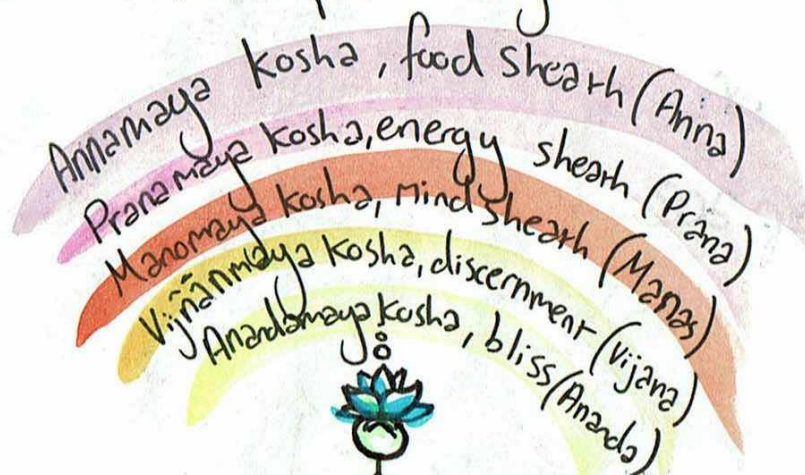 Annamaya Kosha, food sheath (Anna)
Pranamaya Kosha, energy sheath (Prana)
Manomaya Kosha, Mind sheath (Manas)
Vijñãnmaya Kosha, discernment (Vijana)
Anandamaya Kosha, bliss (Ananda)